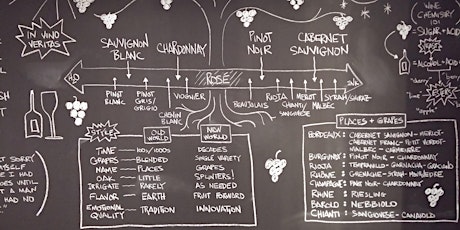 IN VINO
VERITAS
SAUVIGNON
BLANC
CHARDONNAY
PINOT
NOIR
CABERNET
SAUVIGNON
WINE
CHEMISTRY
101
SUGAR + ACID
ALCOHOL +
H2O
ROSÉ
INK
PINOT
BLANC
PINOT
GRIS/
GRIGIO
VIOGNIER
CHENIN
BLANC
BEAUJOLAIS
RIOJA
CHIANTI/
SANGIOVESE
MERLOT
MALBEC
SYRAH/SHIRAZ
STYLE
OLD
WORLD
NEW
WORLD
TIME — 100/1000 DECADES
GRAPES — BLENDED SINGLE VARIETY
NAME — PLACES GRAPES
OAK — LITTLE SPLINTERS!
IRRIGATE — RARELY AS NEEDED
FLAVOR — EARTH FRUIT FORWARD
EMOTIONAL
QUALITY — TRADITION INNOVATION
PLACES + GRAPES
BORDEAUX: CABERNET SAUVIGNON - MERLOT -
CABERNET FRANC - PETIT VERDOT
MALBEC - CARMENERE
BURGUNDY: PINOT NOIR - CHARDONNAY
RIOJA: TEMPRANILLO - GRANACHA - GRACIANO
RHONE: GRENACHE - SYRAH - MOURVEDRE
CHAMPAGNE: PINOT NOIR - CHARDONNAY
RHINE: RIESLING
BAROLO: NEBBIOLO
CHIANTI: SANGIOVESE - CANAIOLO
SORRY
MYSELF
I HAD
DOES
NOT
A MAN
HAD NO